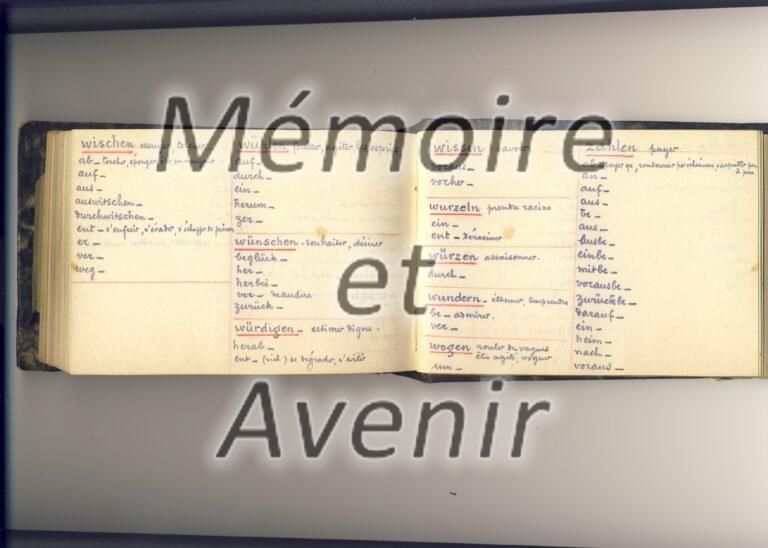 Mémoire
et
Avenir
wischen essuyer
ab_ torcher, éponger
auf_
aus_
auswitschen_
durchwitschen_
ent_ s'enfuir, s'évader, s'échapper de prison
er_
ver_
weg_
wühlen fouiller, agiter les esprits
auf_
durch_
ein_
herum_
zer_
wünschen - souhaiter, désirer
beglück_
her_
herbei_
ver_ maudire
zurück_
würdigen_ estimer digne.
herab_
ent_ (sich) se dégrader, s'avilir
wissen savoir
voraus_
vorher_
wurzeln prendre racine
ein_
ent_ Déraciner
würzen assaisonner.
durch_
wundern_ étonner, surprendre
be_ admirer.
ver_
wogen rouler des vagues
être agité, voguer.
um_
zahlen payer
ab_ payer
an_
auf_
aus_
be_
aus_
Ausbe_
einbe_
mitbe_
vorausbe_
zurückbe_
darauf_
ein_
heim_
nach_
voraus_